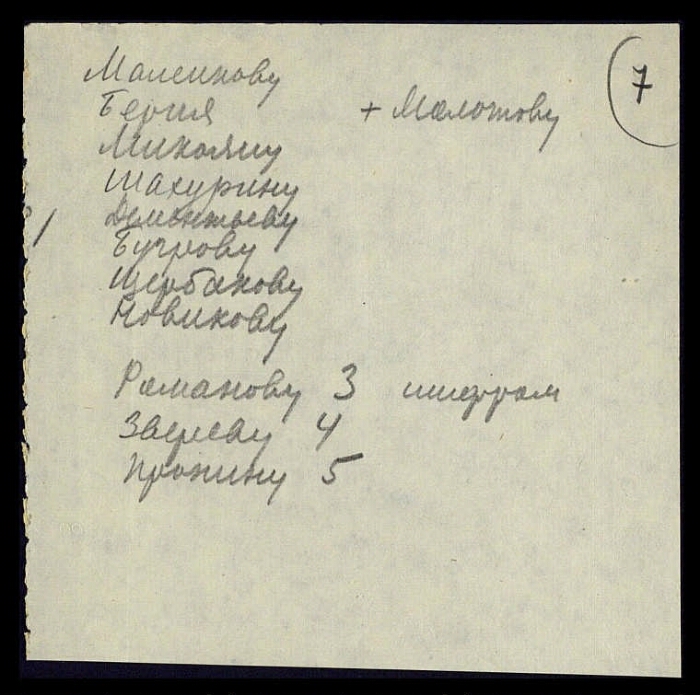 7
Маленкову
Берия + Молотову
Микояну
Шахурину
Дементьеву
Бугрову
Щербакову
Новикову
Романову 3 шифром
Звереву 4
Пронину 5